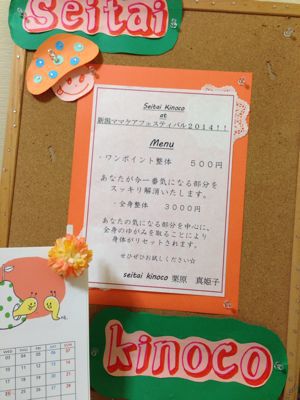 Seitai
Seitai Kinoco
at
新潟ママケアフェスティバル2014!!
Menu
・ワンポイント整体 500円
あなたが今一番気になる部分を
スッキリ解消いたします。
・全身整体 3000円
あなたの気になる部分を中心に、
全身のゆがみを取ることにより
身体がリセットされます。
ぜひぜひお試しください☆
seitai kinoco 栗原 真姫子
kinoco
WED THU FRI SAT